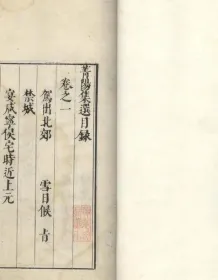 菁陽集選目錄
卷之一
駕出北郊
雪日候肯
禁城
襄咸寧侯宅時近上元